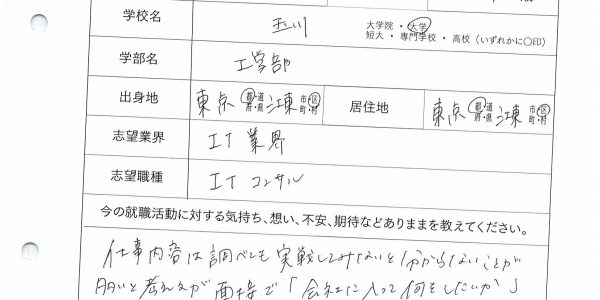 学校名 玉川 大学院・大学
短大・専門学校・高校(いずれかに〇印)
学部名 工学部
出身地 東京 都道府県 江東 市区町村 居住地 東京 都道府県 江東 市区町村
志望業界 IT業界
志望職種 ITコンサル
今の就職活動に対する気持ち、想い、不安、期待などありままを教えてください。
仕事内容は調べても実戦してみないと分からないことが
多いと考えるが面接で「会社に入って何をしたいか」